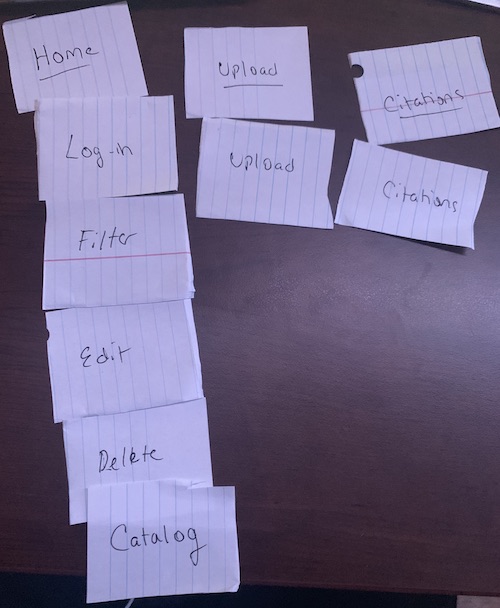 Home
Log-in
Filter
Edit
Delete
Catalog
Upload
Upload
Citations
Citations